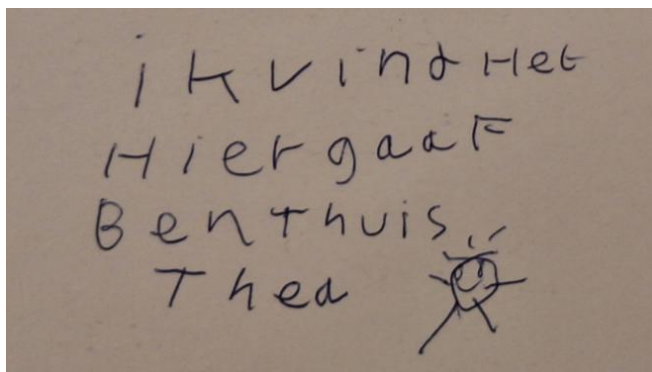 ik vind Het
Hier gaaF
Ben Thuis
Thea